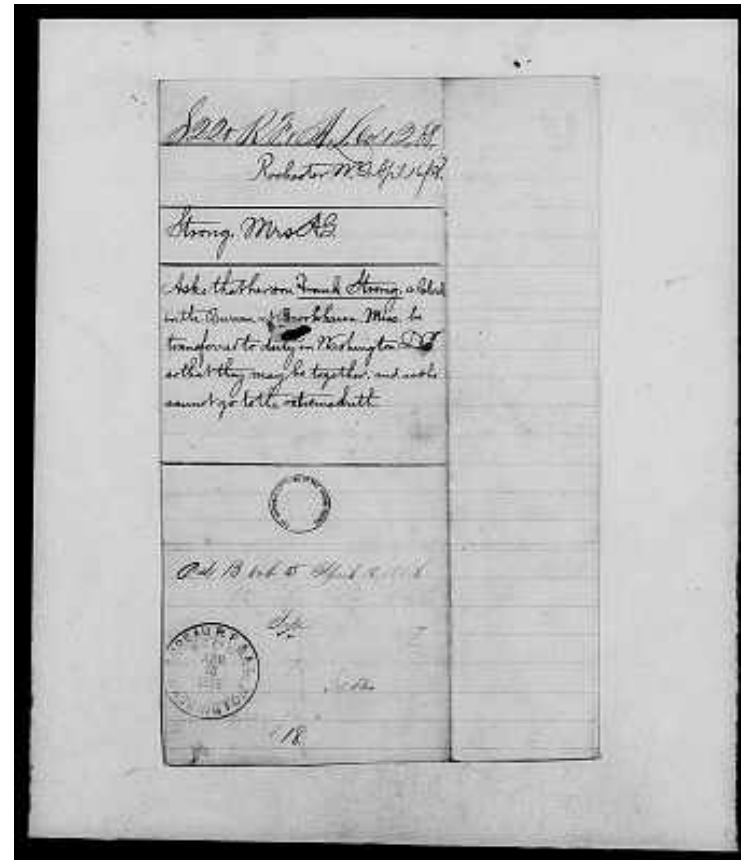 S 220 R.F. & A.L. Vol 12 68
Rochester N.Y. Apl 14/68
Strong, Mrs A G
Asks that her son Frank Strong, a Clerk
in the Bureau at Brookhaven Miss. be
transferred to duty in Washington D.C.
so that they may be together, and as she
cannot go to the extreme South
April
BUREAU R.F. & A.L.
WASHINGTON
18